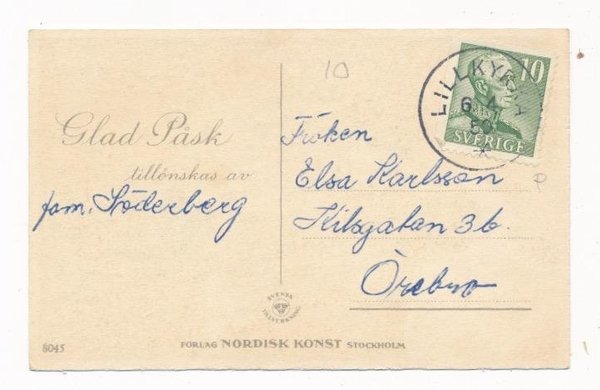 10
LILLKYRKA
6.4.
10
SVERIGE
Glad Påsk
tillönskas av
fam. Söderberg
Fröken
Elsa Karlsson
Kilsgatan 36.
Örebro
SVENSK TILLVERKNING
8045
FÖRLAG NORDISK KONST STOCKHOLM